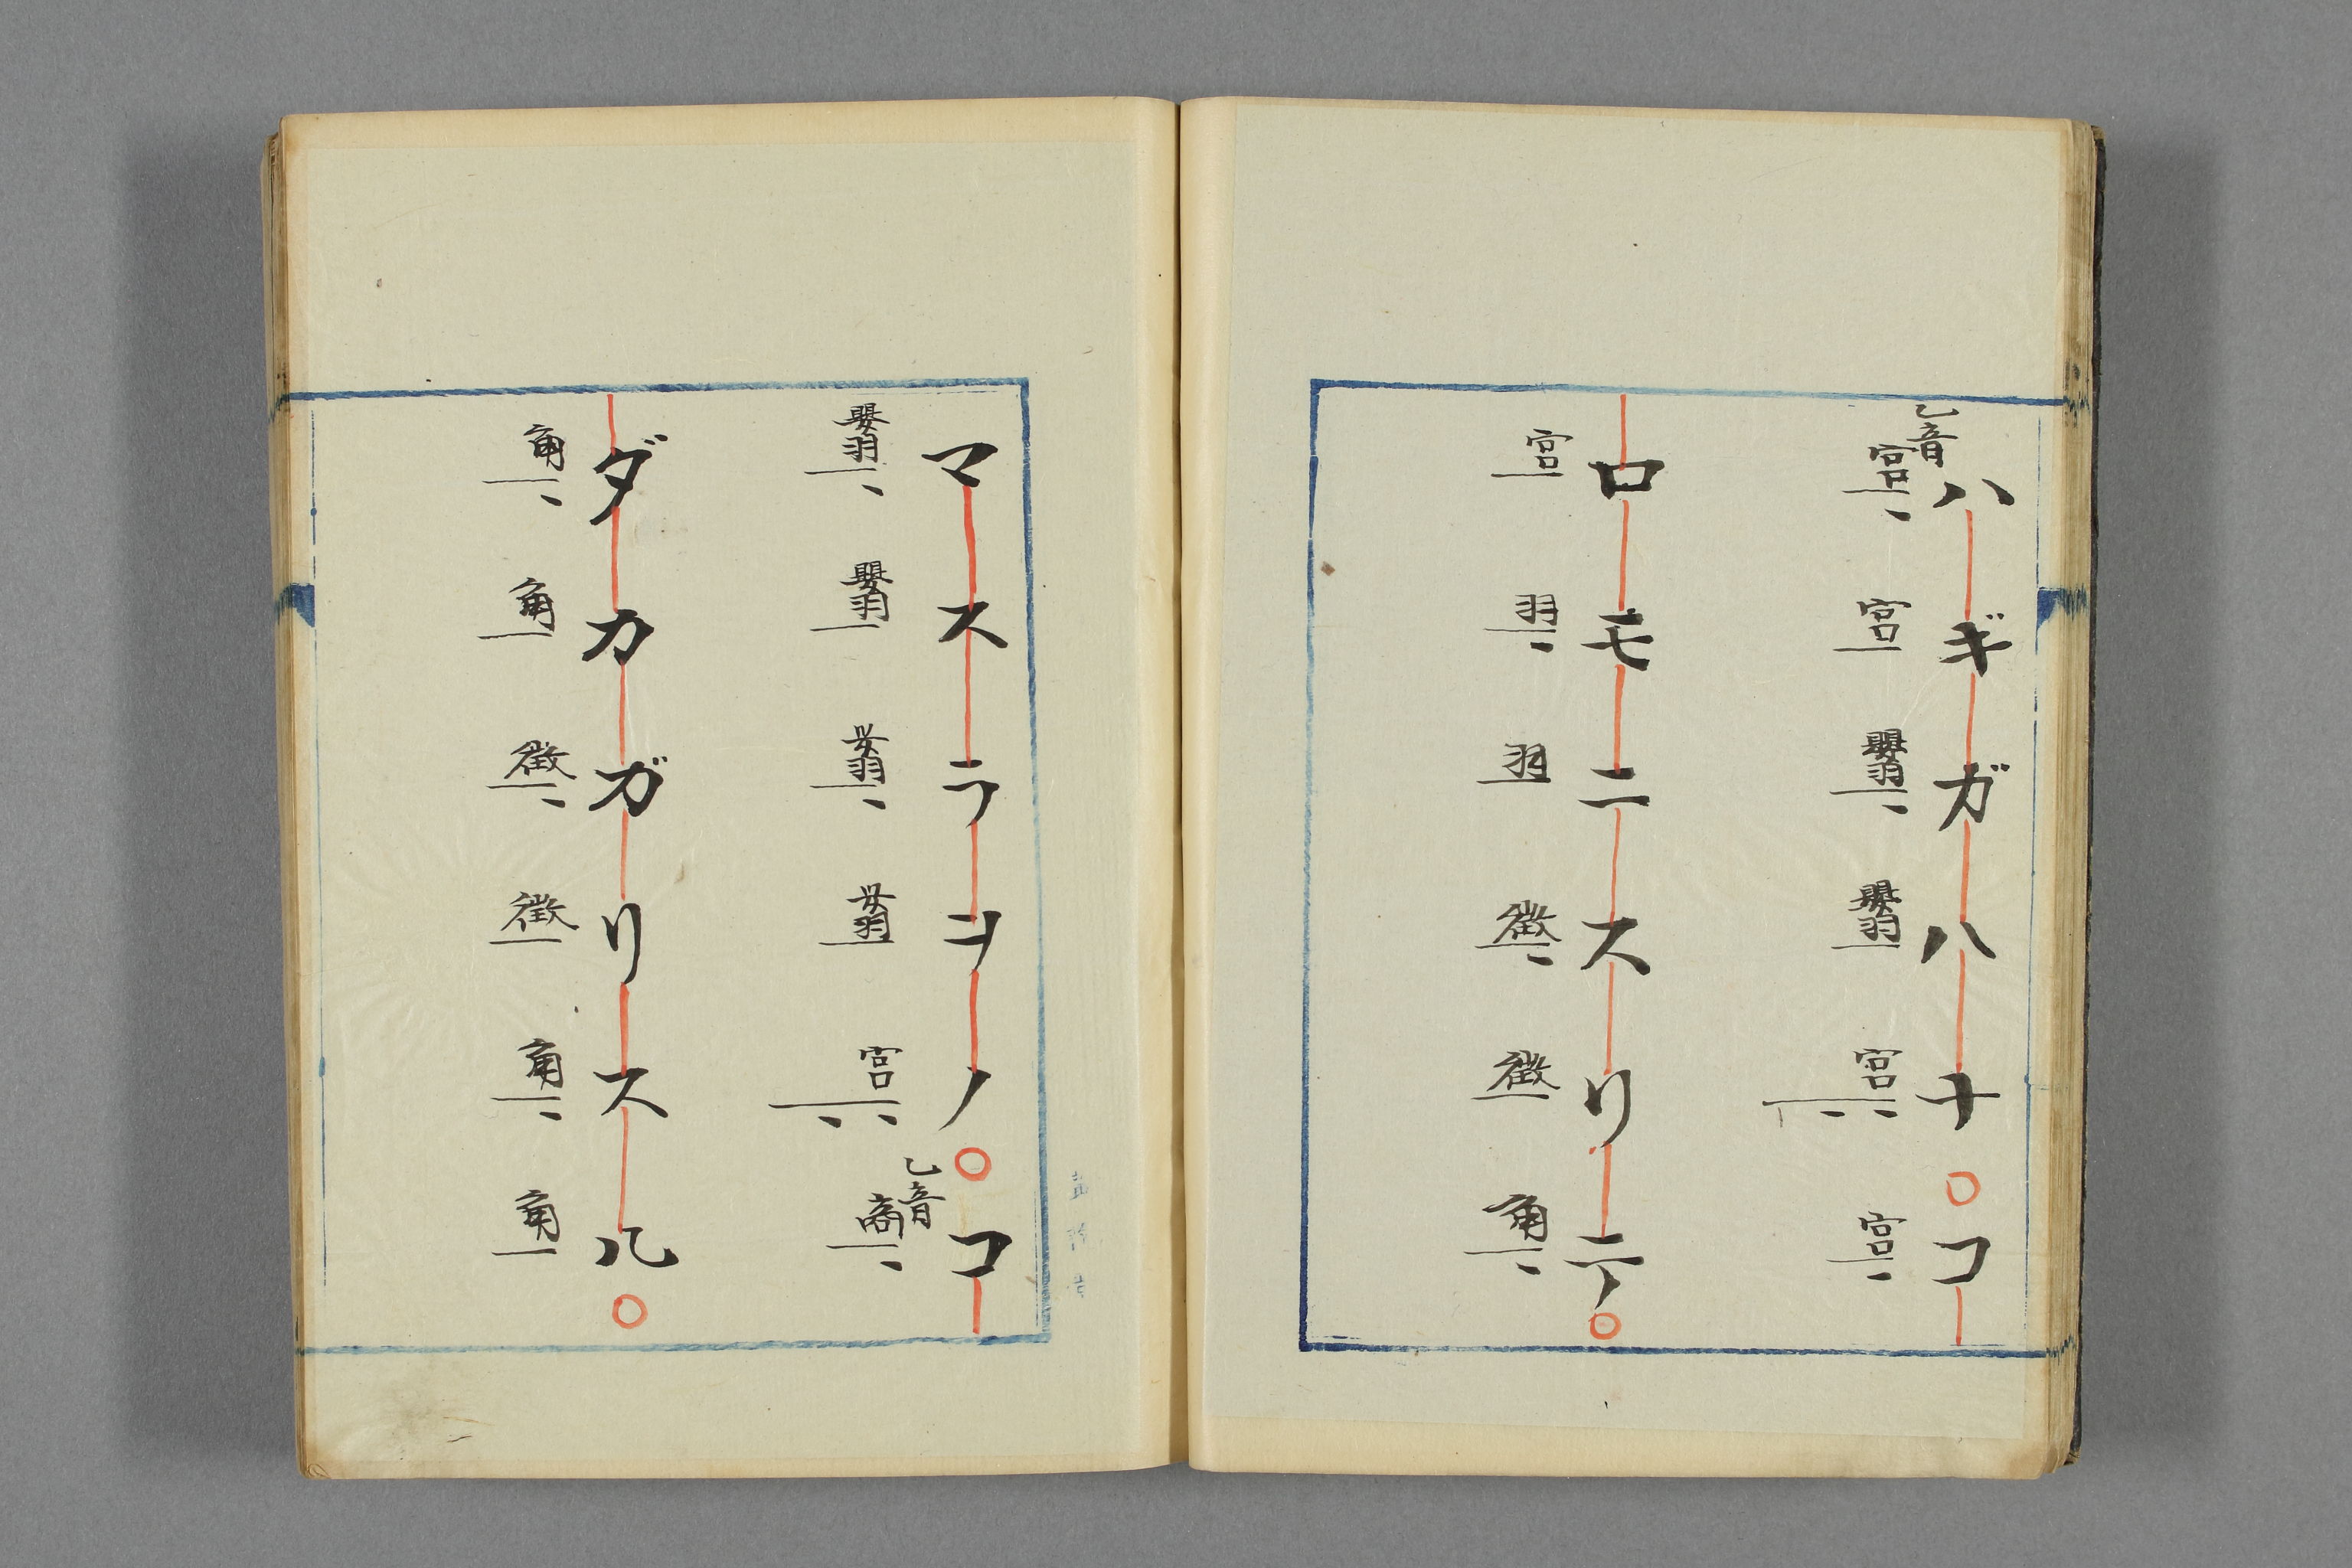 ハギガハナ○コ
乙音
宮 宮 嬰羽 嬰羽 宮 宮
ロモニスリテ○
宮 羽 羽 徴 徴 角
マスラヲノ○コ
乙音
嬰羽 嬰羽 嬰羽 嬰羽 宮 商
ダカガリスル○
角 角 徴 徴 角 角